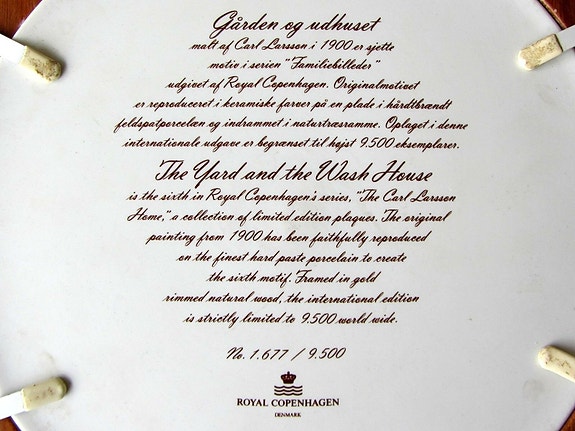 Gården og udhuset
malt af Carl Larsson i 1900 er sjette
motiv i serien "Familiebilleder"
udgivet af Royal Copenhagen. Originalmotivet
er reproduceret i keramiske farver på en plade i hårdtbrændt
feldspatporcelæn og indrammet i naturtræsramme. Oplaget i denne
internationale udgave er begrænset til højst 9.500 eksemplarer.
The Yard and the Wash House
is the sixth in Royal Copenhagen's series, "The Carl Larsson
Home," a collection of limited edition plaques. The original
painting from 1900 has been faithfully reproduced
on the finest hard paste porcelain to create
the sixth motif. Framed in gold
rimmed natural wood, the international edition
is strictly limited to 9.500 world wide.
No. 1.677 / 9.500
ROYAL COPENHAGEN
DENMARK